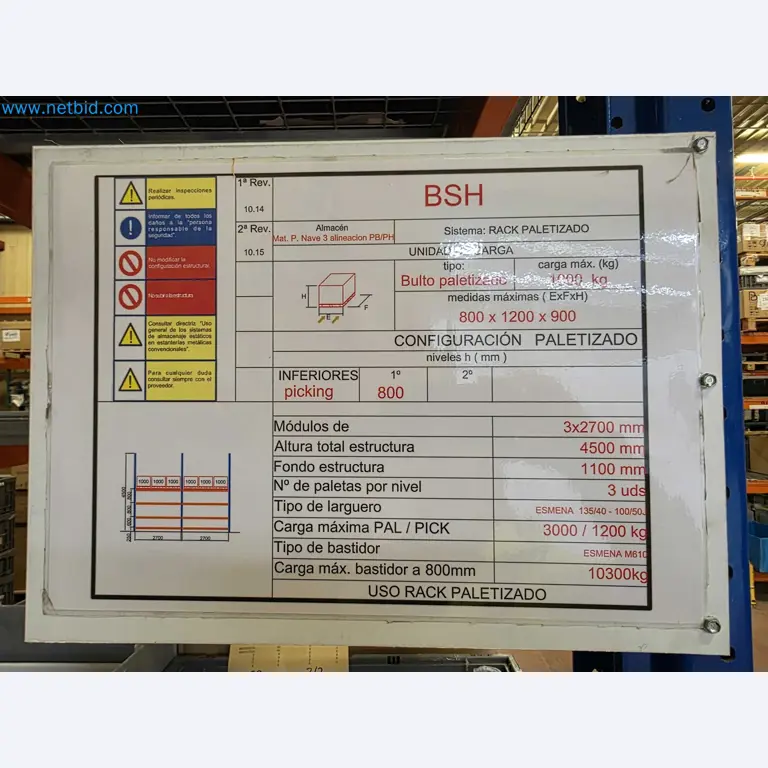 www.netbid.com
Realizar inspecciones
periódicas.
Informar de todos los
daños a la "persona
responsable de la
seguridad".
No modificar la
configuración estructural.
Consultar directriz "Uso
general de los sistemas
de almacenaje estáticos
en estanterías metálicas
convencionales".
Para cualquier duda
consultar siempre con el
proveedor.
1ª Rev.
10.14
2ª Rev.
10.15
BSH
Almacén
Mat. P. Nave 3 alineacion PB/PH
Sistema: RACK PALETIZADO
UNIDAD CARGA
tipo:
Bulto paletizado
carga máx. (kg)
1000 kg
medidas máximas ( ExFxH)
800 x 1200 x 900
H
E
F
CONFIGURACIÓN PALETIZADO
niveles h ( mm )
INFERIORES
picking
1º
800
2º
Módulos de 3x2700 mm
Altura total estructura 4500 mm
Fondo estructura 1100 mm
Nº de paletas por nivel 3 uds
Tipo de larguero ESMENA 135/40 - 100/50J
Carga máxima PAL / PICK 3000 / 1200 kg
Tipo de bastidor ESMENA M610
Carga máx. bastidor a 800mm 10300kg
USO RACK PALETIZADO
1000 1000 1000 1000 1000 1000
2700 2700